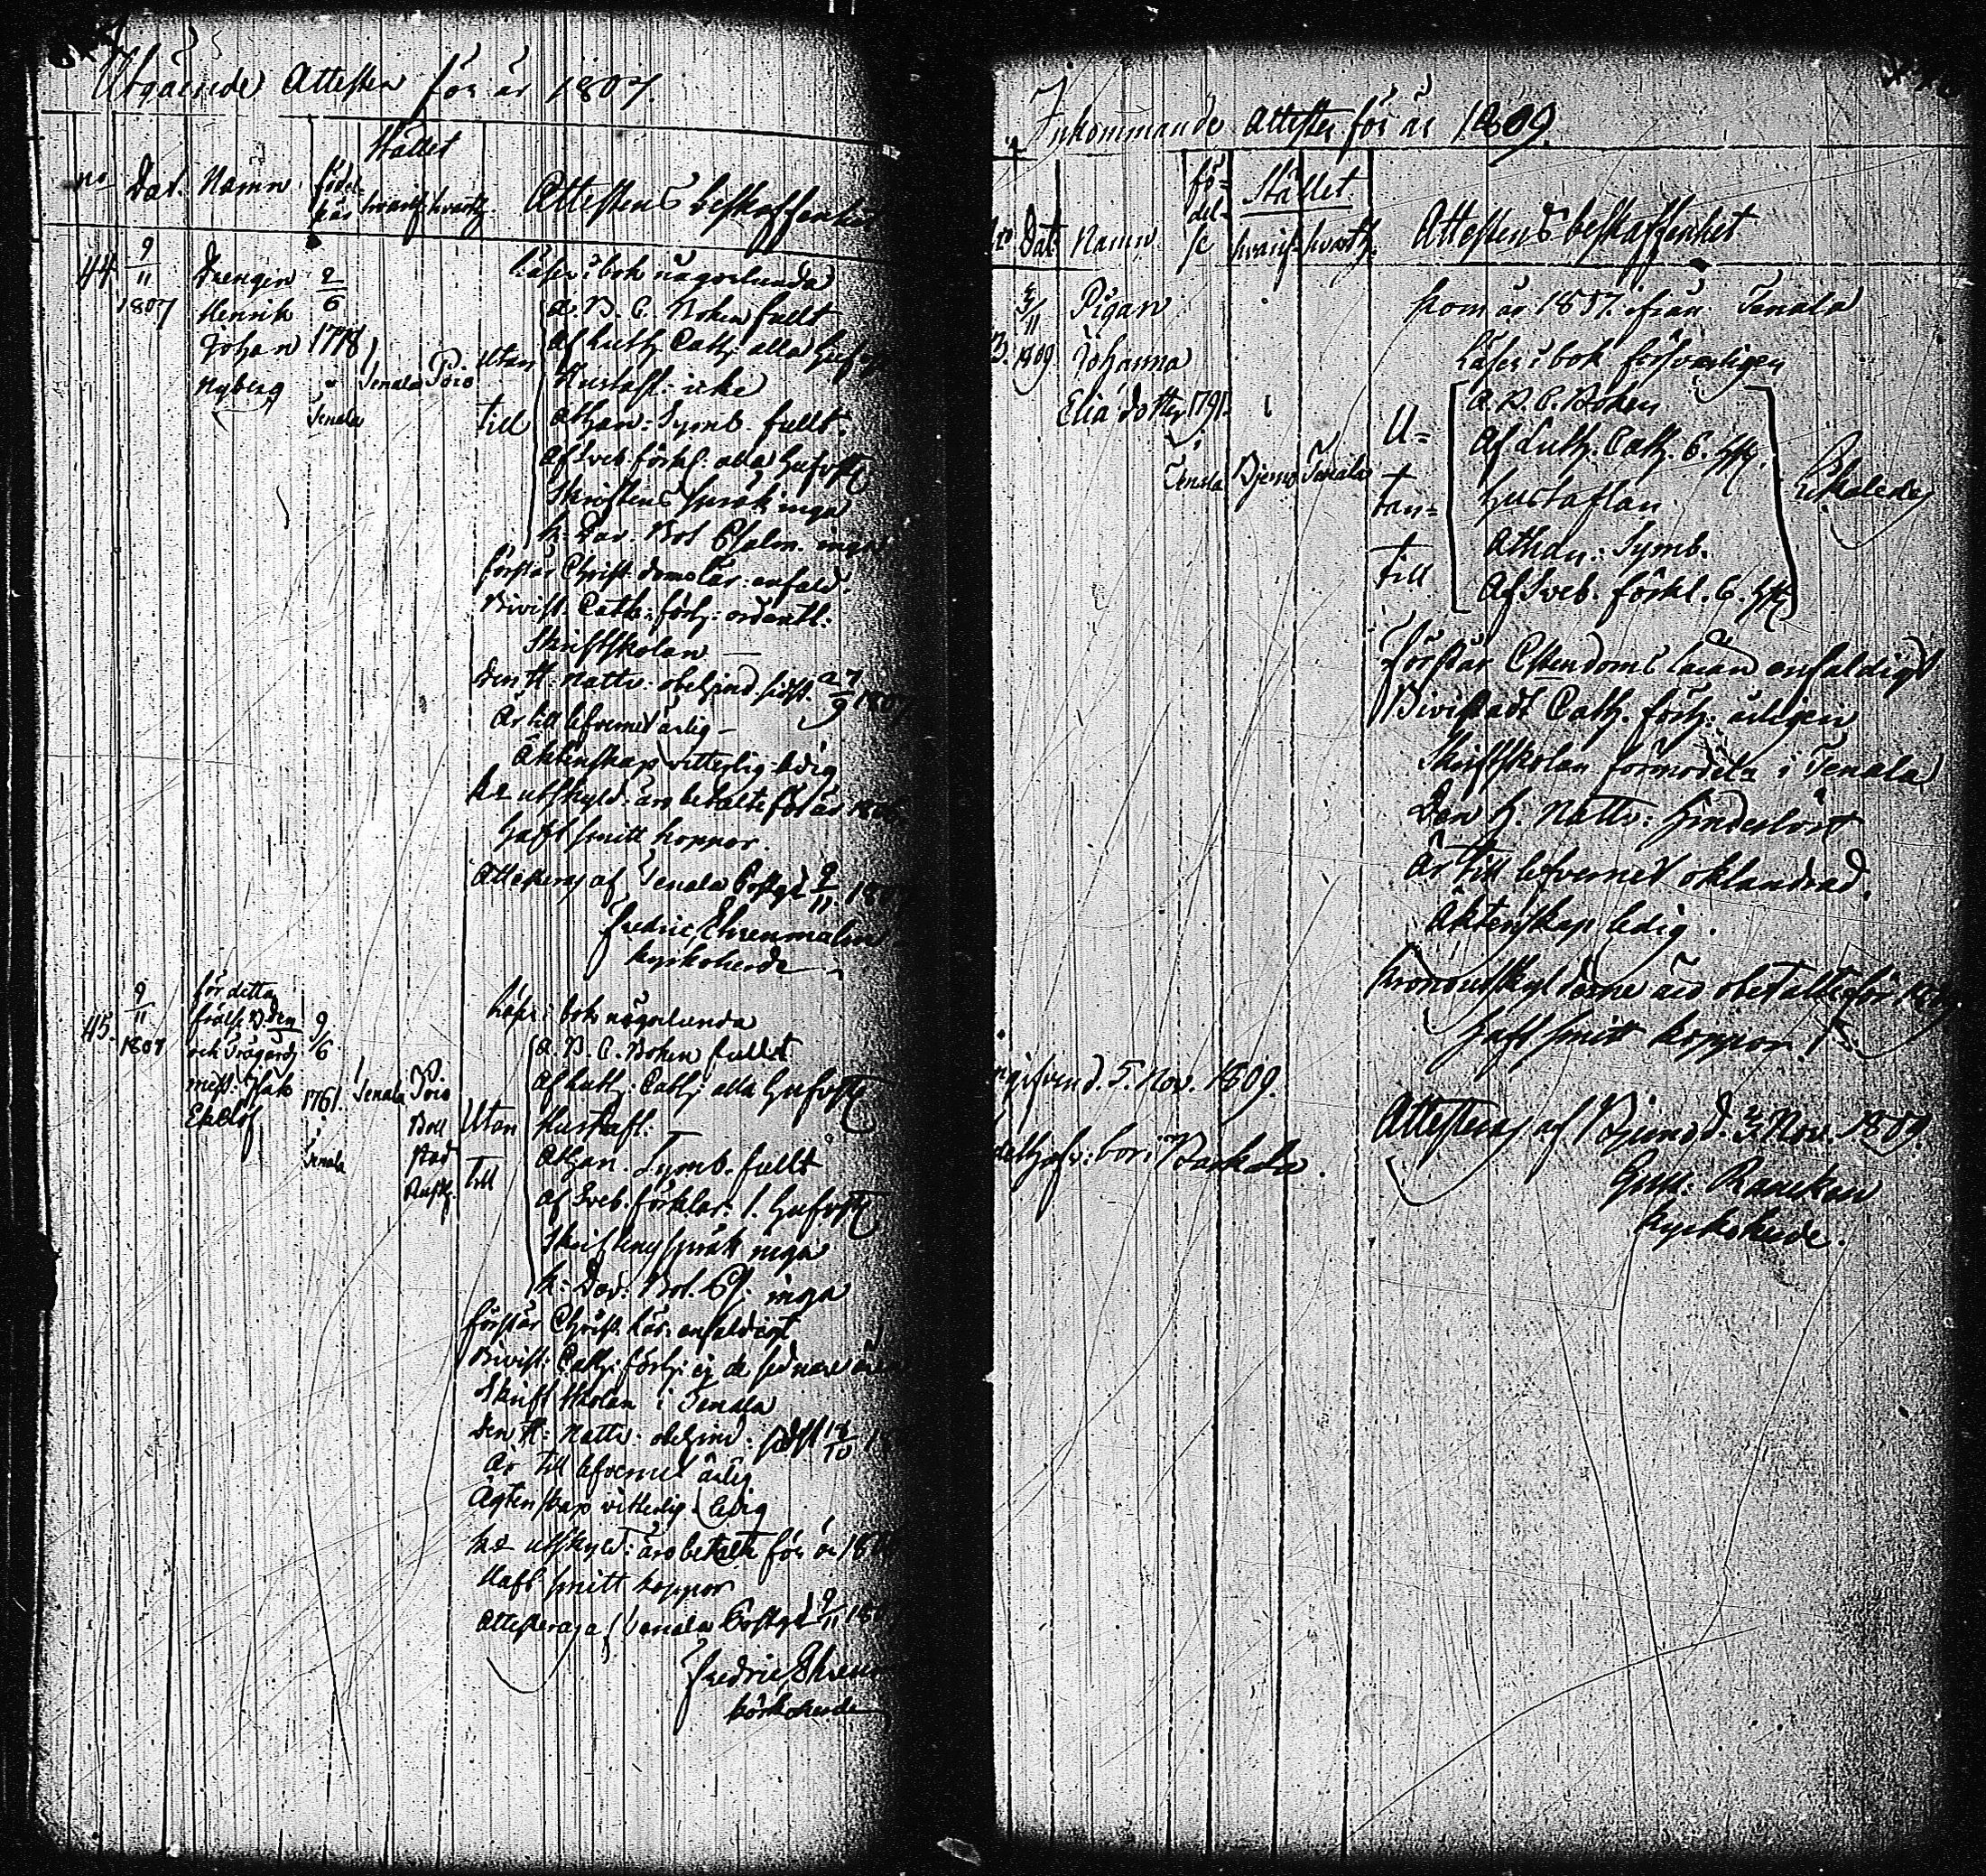 Utgående Attester för år 1807.
Stället
no Dat. Namn. födel. hvarif. hvarth. Attestens beskaffenhet
44. 9/11 1807 Drengen Henrik Johan Nyberg 2/6 1778 Tenala Tenala Poio
Läser i bok någorlunda
Utan till
A. B. C. Boken fullt
Af Luth. Cath. alla Hufvst
Hustafl. icke
Athan: Symb. fullt.
Af Sveb. förkl. alla Hufvst
Skriftens språk inga
K. Dav. Bot Psalm. inga
förstår Christ: doms lär: enfald.
Bivist. Cath: förh: ordentl.
Skriftskolan —
Den H. Nattv: obehind sidst. 27/9 1807
Är till lefvernet ärlig —
Äktenskap vitterlig ledig
Kr utskyld: äro betalte för år 1806.
Haft smitt koppor.
Attesteras af Tenala Prstgd 9/11 1807
Fredric Ehrenmalm
kyrkoherde
45. 9/11 1807 för detta
och Trägårds
mäst. Jak
Eklöf
9/6 1761. Tenala Tenala Poio
Läser i bok någorlunda
Utan till
A. B. C. Boken fullt
Af Luth. Cath: alla Hufvst
Hustafl.
Athan. Symb. fullt
Af Sveb. förklar: 1. Hufvst
Skriftens språk inga
K: Dav: Bot. Ps: inga
förstår Christ. lär: enfaldigt
Bivist: Cath: förh: ej de sednare åren
Skrift skolan i Tenala
Den H: Nattv: obehind: sidst 18/10
Är till lefvernet ärlig
Ägtenskap vitterlig ledig
Kr utskyld: äro betalte för år 180
Haft smitt koppor
Attesteras af Tenala Prstgd 9/11 180
Fredric Ehren
kyrkoherde
Inkommande Attester för år 1809.
Stället
Dat. Namn födelse hvarif. hvarth. Attestens beskaffenhet
3/11 1809. Pigan Johanna Elia dotter 1791. Tenala Bjerno Tenala
Kom år 1807. från Tenala
Läser i bok försvarligen
U= tan= till
A. B. C. Boken
Af Luth. Cath. 6. Hst.
Hustaflan.
Athan: Symb.
Af Sveb. förkl. 6. Hst
Förstår Christendoms läran enfaldigt
Bivistadt Cath. förh: årligen
Skriftskolan förmodeln i Tenala
Den H. Nattv: hinderlöst
Är till lefvernet oklandrad.
Äktenskap ledig.
Kronoutskylderne äro obetalte för 1809
haft smitt koppor.
Attesteras af Bjerno d. 3 Nov. 1809.
Gust. Rancken
kyrkoherde.
ingifven d. 5. Nov. 1809.